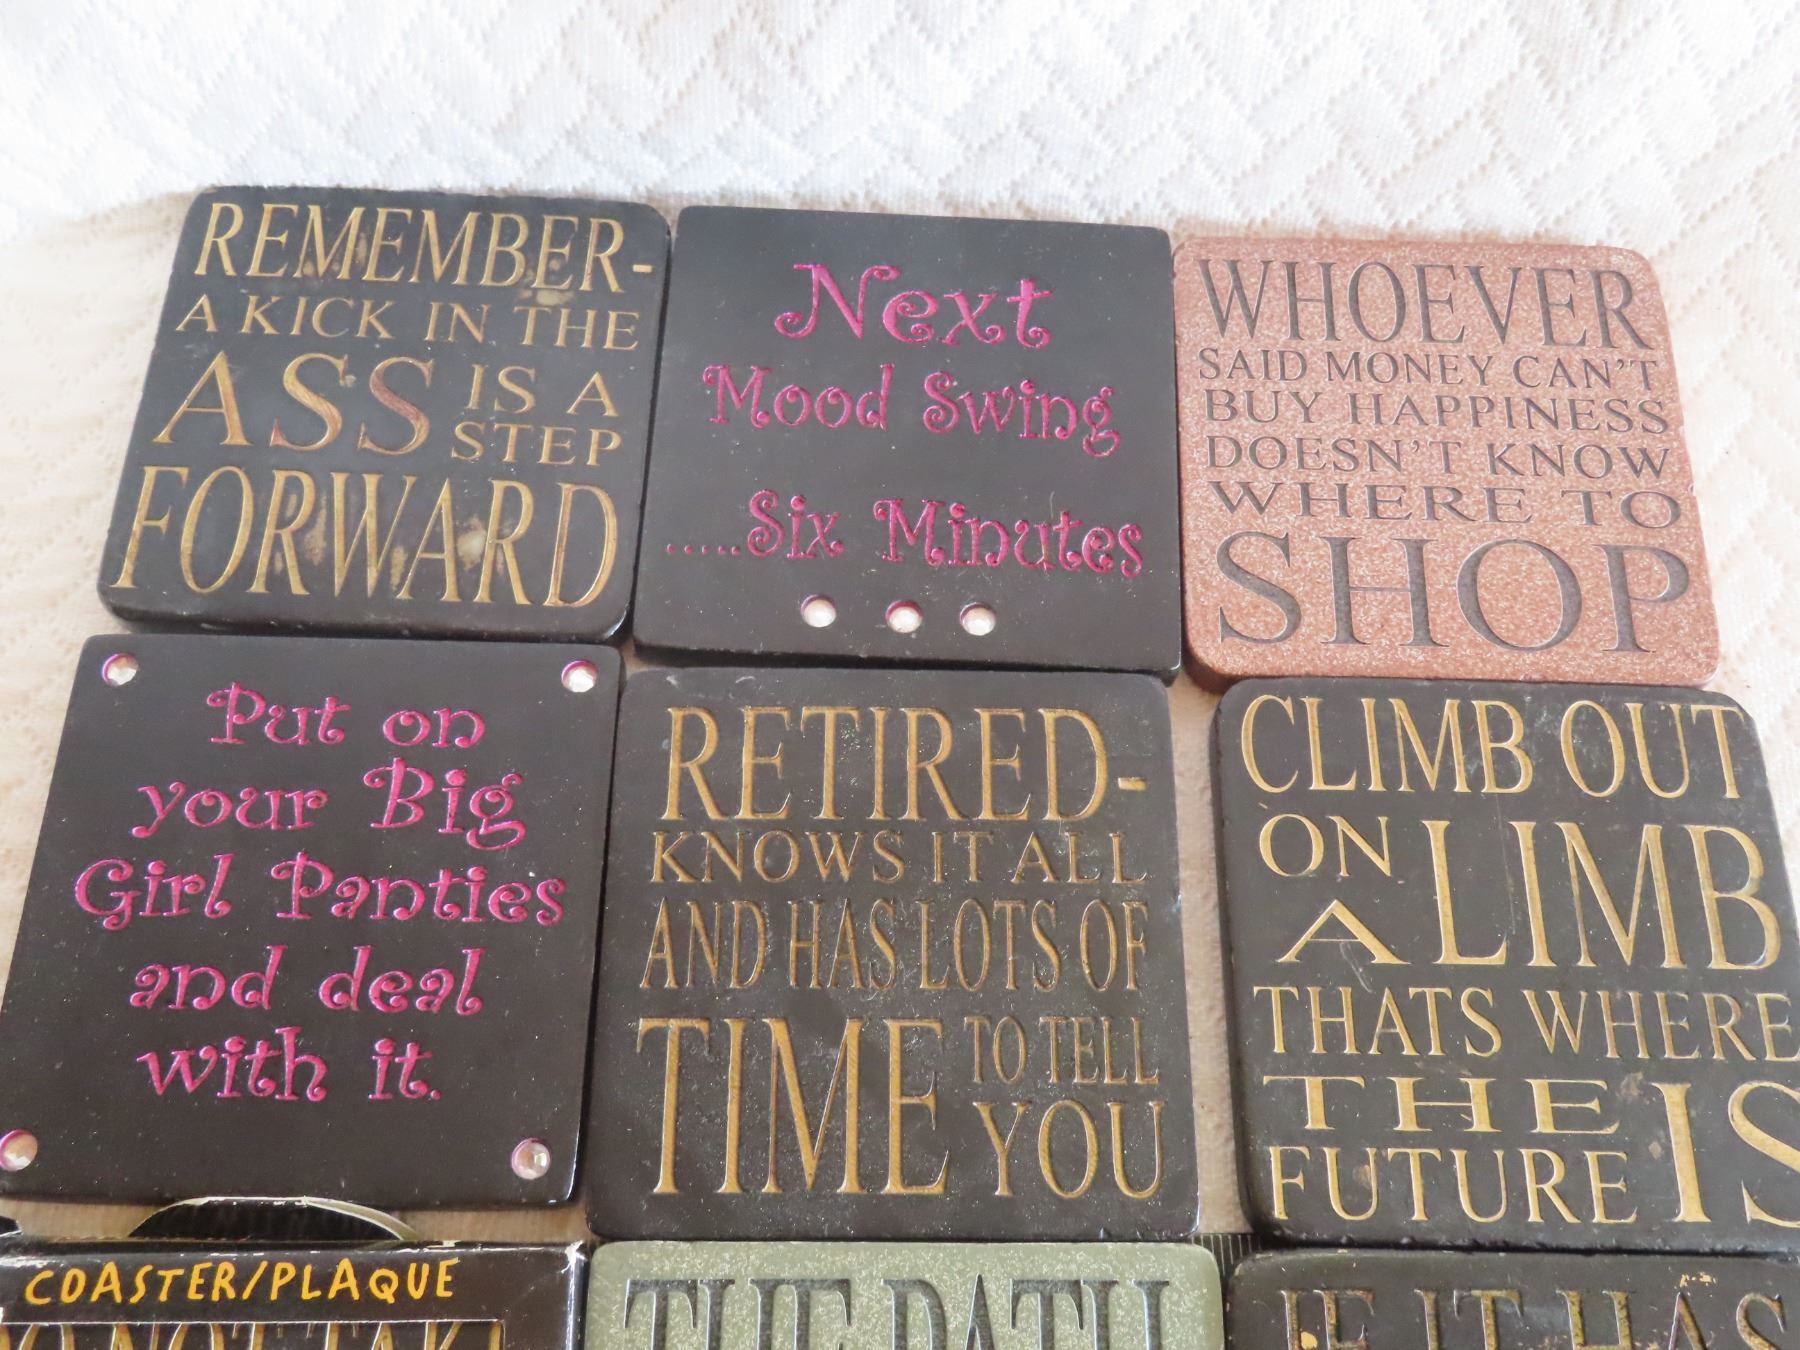 REMEMBER-
A KICK IN THE
ASS IS A
STEP
FORWARD
Next
Mood Swing
.....Six Minutes
WHOEVER
SAID MONEY CAN'T
BUY HAPPINESS
DOESN'T KNOW
WHERE TO
SHOP
Put on
your Big
Girl Panties
and deal
with it.
RETIRED-
KNOWS IT ALL
AND HAS LOTS OF
TIME TO TELL
YOU
CLIMB OUT
ON
A LIMB
THATS WHERE
THE
FUTURE IS
COASTER/PLAQUE
THE PATH
IF IT HAS